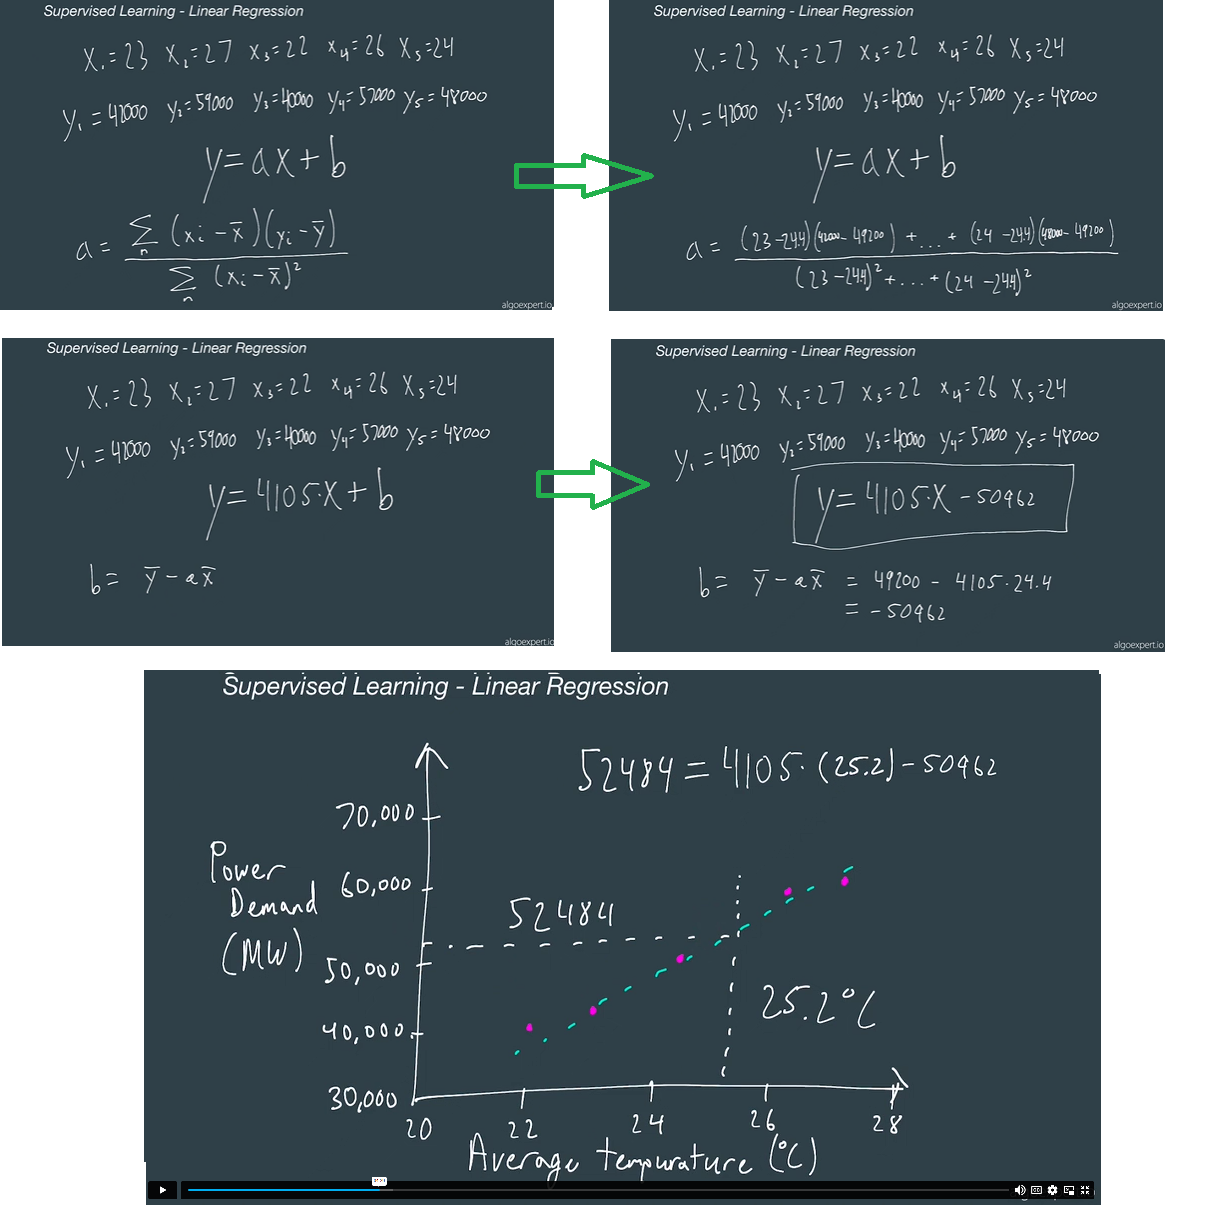 Supervised Learning - Linear Regression
x₁=23 x₂=27 x₃=22 x₄=26 x₅=24
y₁=42000 y₂=59000 y₃=40000 y₄=57000 y₅=48000
y=ax+b
a= Σn (xi-x̅)(yi-y̅) / Σn (xi-x̅)²
algoexpert.io
Supervised Learning - Linear Regression
x₁=23 x₂=27 x₃=22 x₄=26 x₅=24
y₁=42000 y₂=59000 y₃=40000 y₄=57000 y₅=48000
y=ax+b
a= (23-24.4)(42000-49200)+...+(24-24.4)(48000-49200) / (23-24.4)²+...+(24-24.4)²
algoexpert.io
Supervised Learning - Linear Regression
x₁=23 x₂=27 x₃=22 x₄=26 x₅=24
y₁=42000 y₂=59000 y₃=40000 y₄=57000 y₅=48000
y=4105·x+b
b= y̅-ax̅
algoexpert.io
Supervised Learning - Linear Regression
x₁=23 x₂=27 x₃=22 x₄=26 x₅=24
y₁=42000 y₂=59000 y₃=40000 y₄=57000 y₅=48000
y=4105·x-50962
b= y̅-ax̅ = 49200-4105·24.4
= -50962
algoexpert.io
Supervised Learning - Linear Regression
52484=4105·(25.2)-50962
70,000
60,000
50,000
40,000
30,000
Power
Demand
(MW)
52484
25.2°C
20 22 24 26 28
Average tempurature (°C)